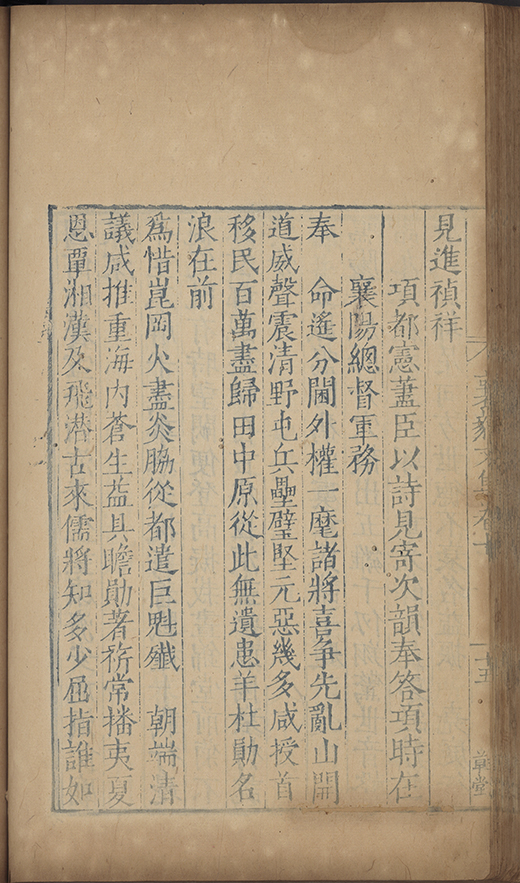 見進禎祥
項都憲藎臣以詩見寄次韻奉答項時在
襄陽總督軍務
奉　命遙分閫外權一麾諸將喜爭先亂山開
道威聲震清野屯兵壘壁堅元惡幾多咸授首
移民百萬盡歸田中原從此無遺患羊杜勳名
浪在前
爲惜崑岡火盡炎脇從都遣巨魁殲　朝端清
議咸推重海內蒼生葢具瞻勛著旂常播夷夏
恩覃湘漢及飛潛古來儒將知多少屈指誰如
十五
草堂